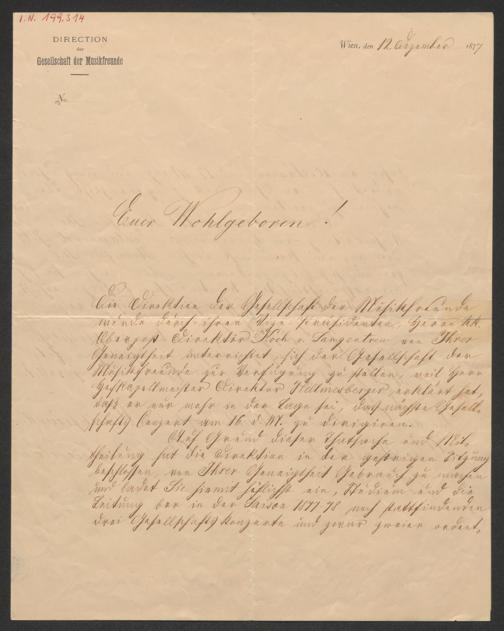 I.N. 199.514
DIRECTION
der
Gesellschaft der Musikfreunde
Wien, den 12 Dezember 1877
№
Euer Wohlgeboren!
Die Direktion der Gesellschaft der Musikfreunde
wurde durch ihren Vize Präsidenten, Herrn kk.
Oberpost-Direktor Koch v. Langentreu von Ihrer
Geneigtheit unterrichtet, sich der Gesellschaft der
Musikfreunde zur Verfügung zu stellen, weil Herr
Hofkapellmeister Direktor Hellmesberger erklärt hat,
daß er nur mehr in der Lage sei, das nächste Gesell-
schafts Conzert am 16. d. Mt. zu dirigiren.
Auf Grund dieser Thatsache und Mit-
theilung hat die Direktion in der gestrigen Sitzung
beschlossen, von Ihrer Geneigtheit Gebrauch zu machen
und ladet Sie hiemit höflichst ein, Studium und die
Leitung der in der Saison 1877-78 noch stattfindenden
drei Gesellschafts Konzerte und zwar zweier ordent.